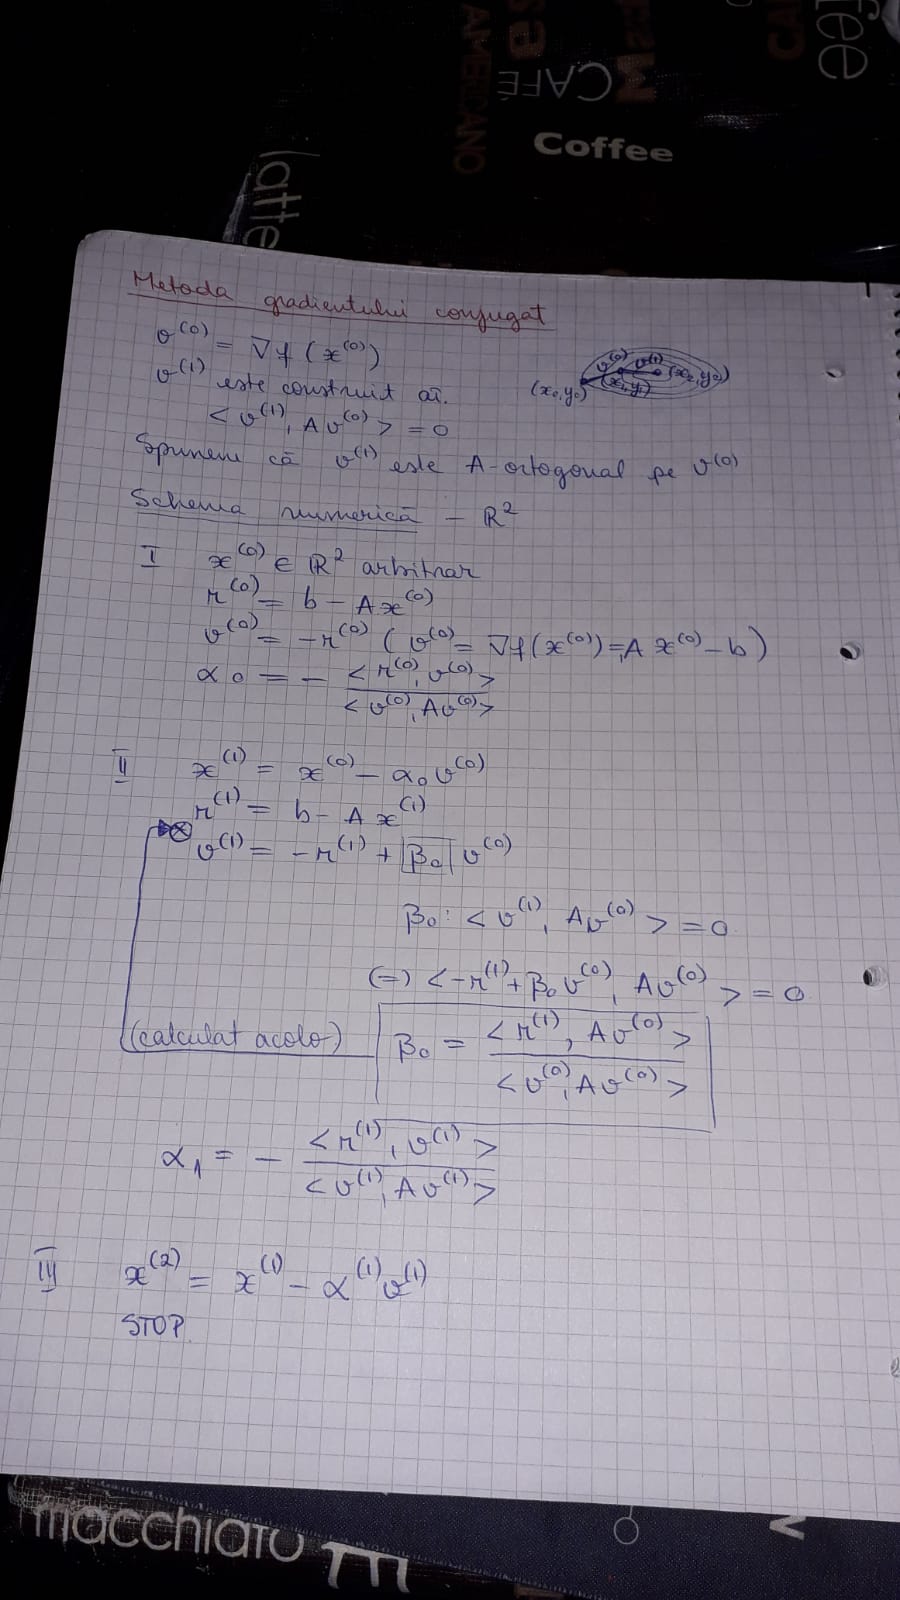 latte
AMERICANO
CAFÉ
Coffee
fee
Metoda gradientului conjugat
v^(0) = ∇f(x^(0))
v^(1) este construit aî.
<v^(1), Av^(0)> = 0
(x₀,y₀) v^(0) (x₁,y₁) v^(1) (x₂,y₂)
Spunem că v^(1) este A-ortogonal pe v^(0)
Schema numerică - ℝ²
I x^(0) ∈ ℝ² arbitrar
r^(0) = b - Ax^(0)
v^(0) = -r^(0) (v^(0) = ∇f(x^(0)) = Ax^(0) - b)
α₀ = - <r^(0), v^(0)> / <v^(0), Av^(0)>
II x^(1) = x^(0) - α₀v^(0)
r^(1) = b - Ax^(1)
⊗ v^(1) = -r^(1) + β₀ v^(0)
β₀: <v^(1), Av^(0)> = 0
(=) <-r^(1) + β₀v^(0), Av^(0)> = 0
(calculat acolo) β₀ = <r^(1), Av^(0)> / <v^(0), Av^(0)>
α₁ = - <r^(1), v^(1)> / <v^(1), Av^(1)>
III x^(2) = x^(1) - α^(1)v^(1)
STOP.
macchiato